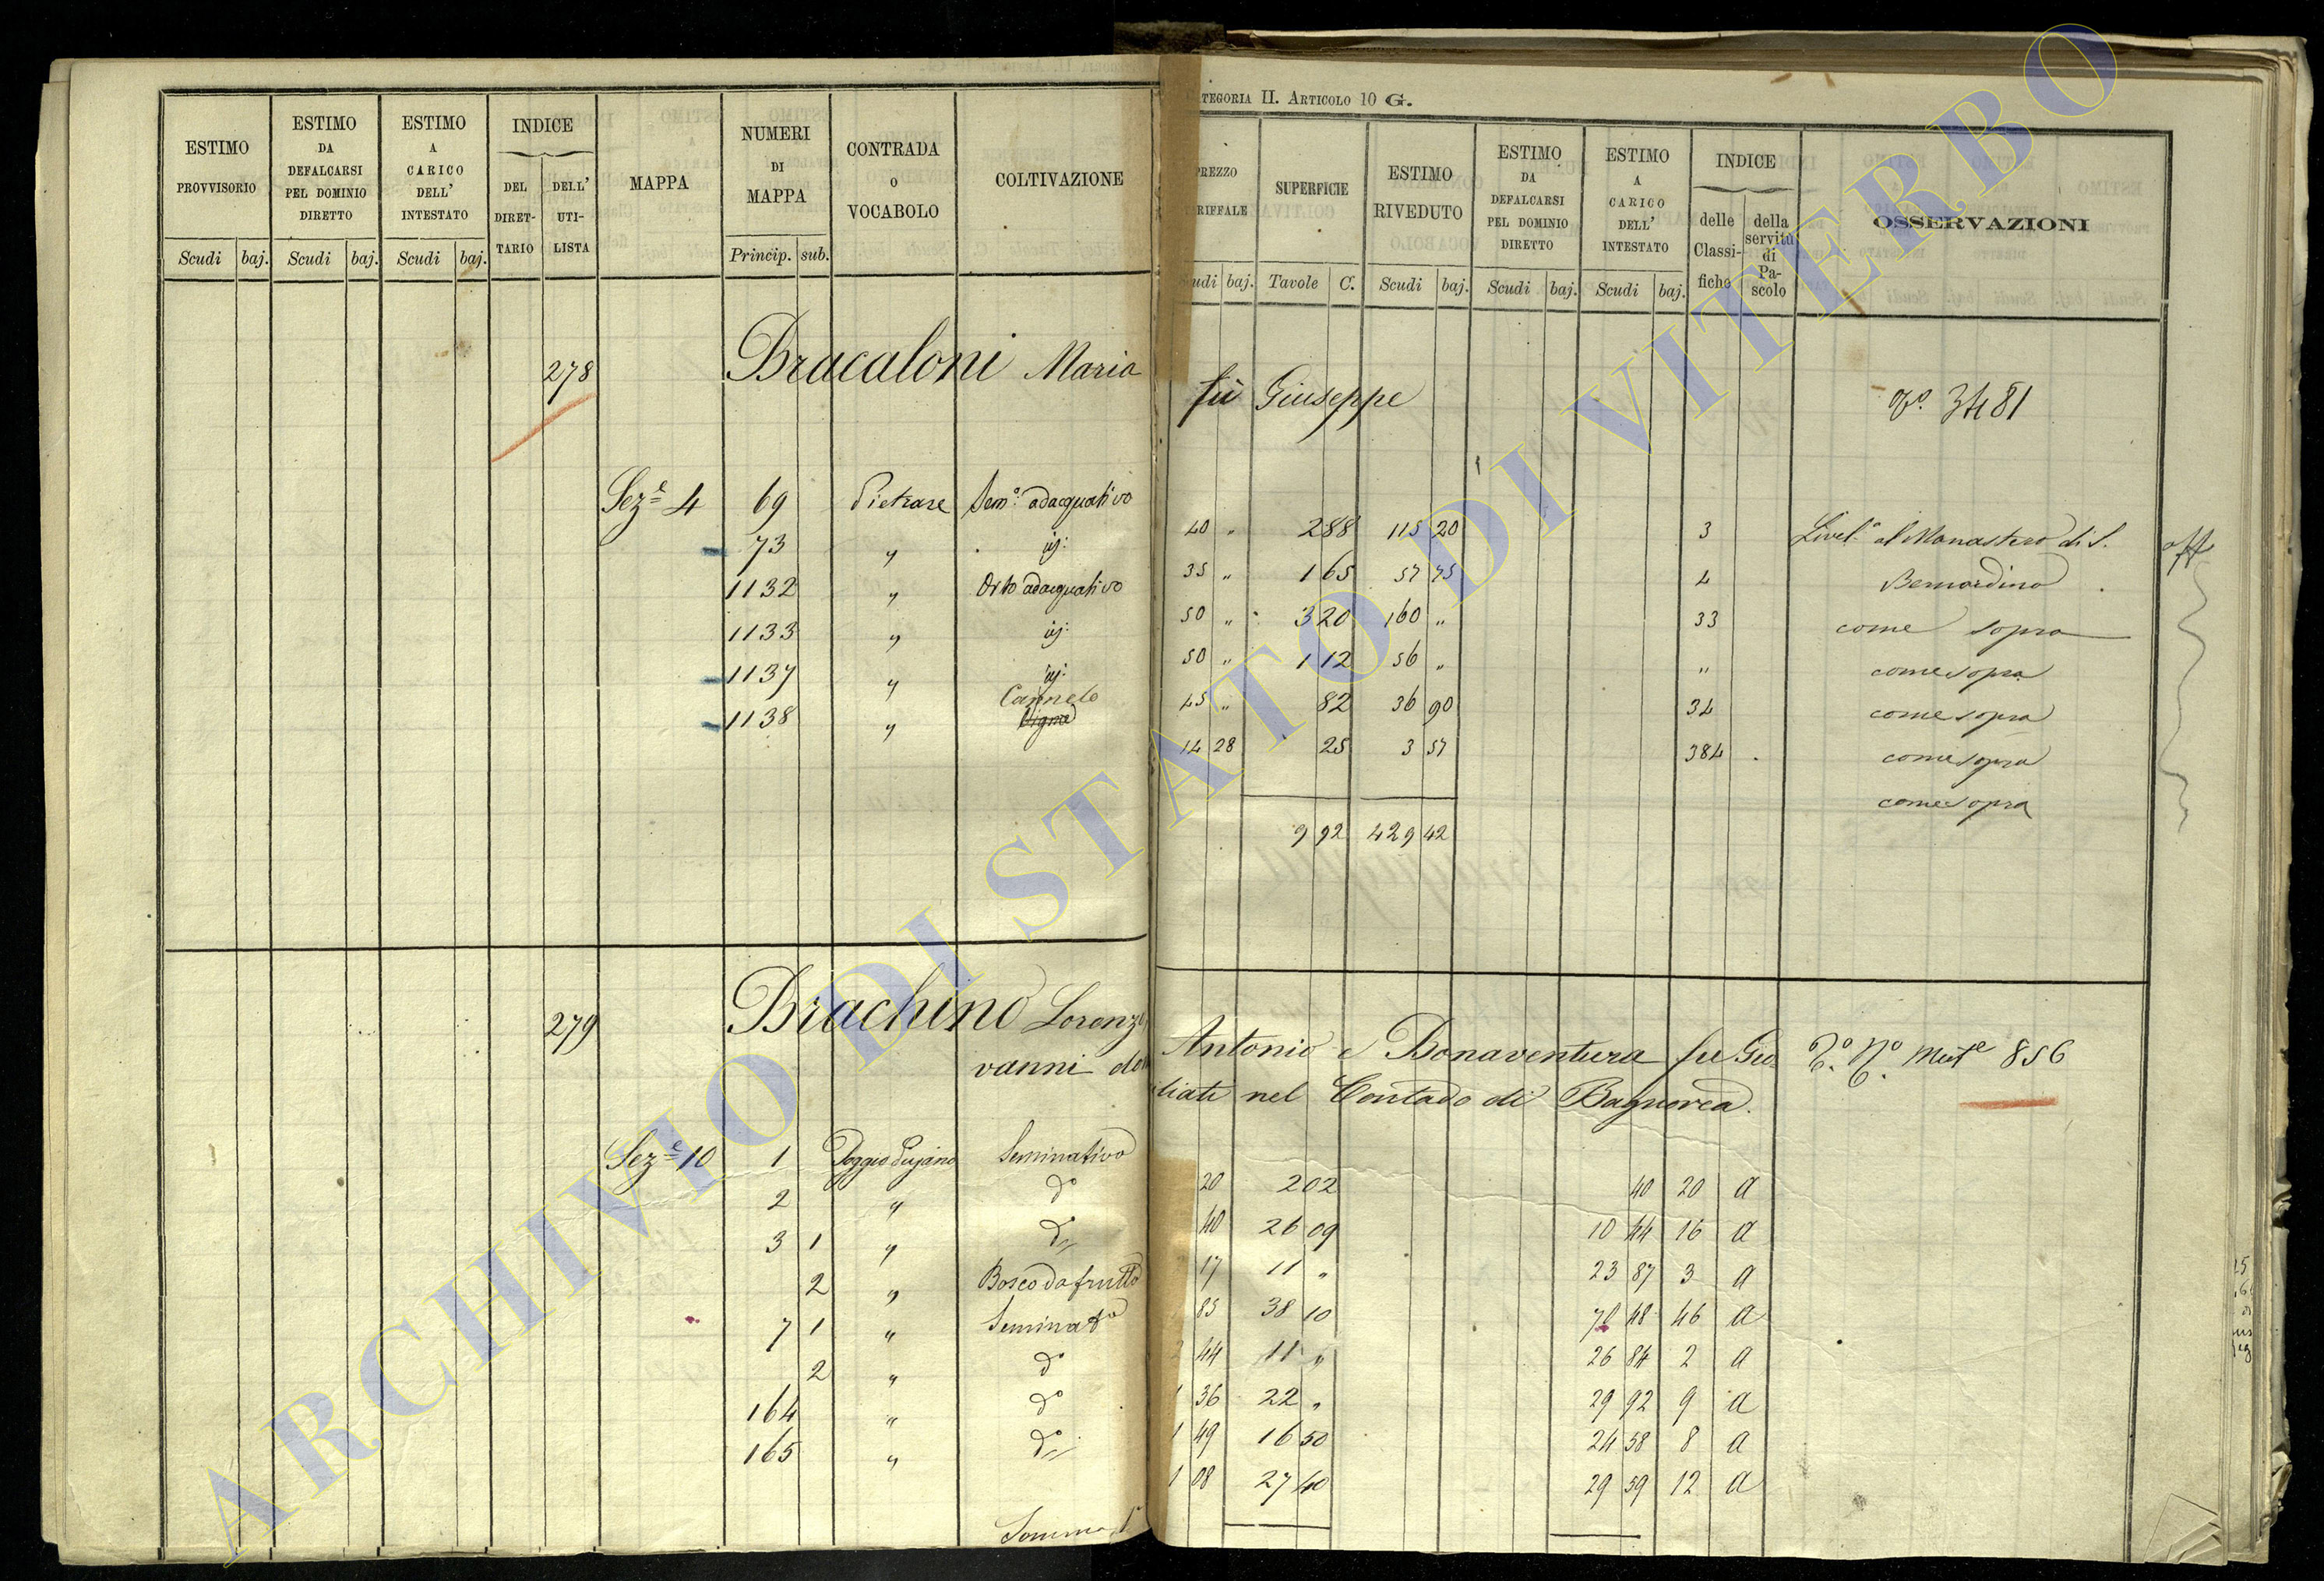 ESTIMO PROVVISORIO
ESTIMO DA DEFALCARSI PEL DOMINIO DIRETTO
ESTIMO A CARICO DELL' INTESTATO
INDICE
DEL DIRET-TARIO
DELL' UTI-LISTA
MAPPA
NUMERI DI MAPPA
CONTRADA O VOCABOLO
COLTIVAZIONE
Scudi baj. Scudi baj. Scudi baj. Princip. sub.
278 Bracaloni Maria
Sez.e 4 69 Pietrare Sem.o adacquativo
73 " id:
1132 " Orto adacquativo
1133 " id:
1137 " id:
Canneto
1138 " Vigna
279 Brachino Lorenzo,
vanni do
Sez.e 10 1 Poggio Sejano Seminativo
2 " do
3 1 " do
2 " Bosco da frutto
7 1 " Seminato
2 " do
164 " do
165 " do
Somma
ATEGORIA II. ARTICOLO 10 G.
PREZZO RIFFALE
SUPERFICIE
ESTIMO RIVEDUTO
ESTIMO DA DEFALCARSI PEL DOMINIO DIRETTO
ESTIMO A CARICO DELL' INTESTATO
INDICE
delle Classi-fiche
della servitù di Pa-scolo
OSSERVAZIONI
udi baj. Tavole C. Scudi baj. Scudi baj. Scudi baj.
fù Giuseppe 3481
40 " 2 88 115 20 3 Livel.o al Monastero di S.
35 " 1 65 57 75 4 Bernardino
50 " 3 20 160 " 33 come sopra
50 " 1 12 56 " " come sopra
45 " 82 36 90 34 come sopra
14 28 25 3 57 384 come sopra
come sopra
9 92 429 42
Antonio e Bonaventura fu Gio- 856
liati nel Contado di Bagnorea.
20 2 02 40 20 a
40 26 09 10 44 16 a
17 11 " 23 87 3 a
85 38 10 70 48 46 a
44 11 " 26 84 2 a
1 36 22 " 29 92 9 a
1 49 16 50 24 58 8 a
1 08 27 40 29 59 12 a
ARCHIVIO DI STATO DI VITERBO